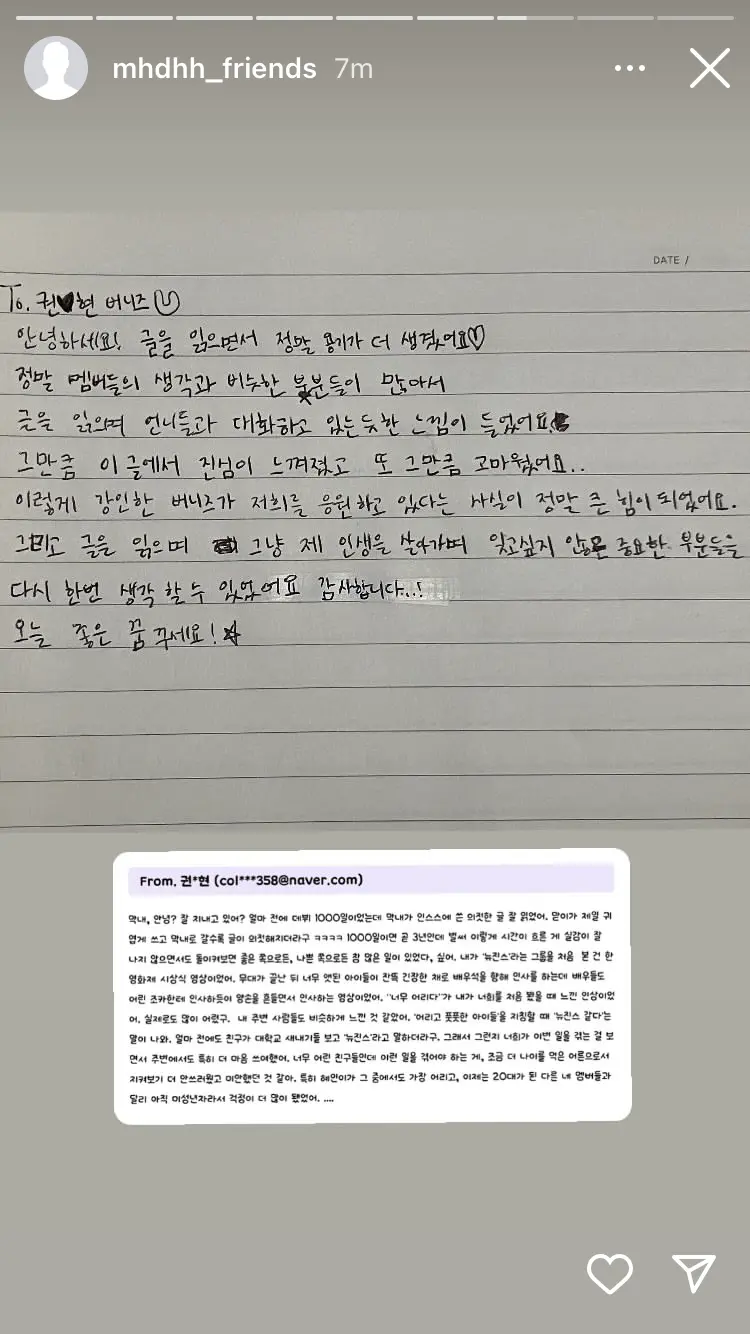 mhdhh_friends 7m
DATE /
To. 권♥현 버니즈
안녕하세요! 글을 읽으면서 정말 용기가 더 생겼어요♡
정말 멤버들의 생각과 비슷한 부분들이 많아서
글을 읽으며 언니들과 대화하고 있는듯한 느낌이 들었어요
그만큼 이 글에서 진심이 느껴졌고 또 그만큼 고마웠어요..
이렇게 강인한 버니즈가 저희를 응원하고 있다는 사실이 정말 큰 힘이 되었어요.
그리고 글을 읽으며 그냥 제 인생을 살아가며 잊고싶지 않은 중요한 부분들을
다시 한번 생각 할 수 있었어요 감사합니다..!
오늘 좋은 꿈 꾸세요!☆
From. 권*현 (col***358@naver.com)
막내, 안녕? 잘 지내고 있어? 얼마 전에 데뷔 1000일이었는데 막내가 인스스에 쓴 의젓한 글 잘 읽었어. 맏이가 제일 귀
엽게 쓰고 막내로 갈수록 글이 의젓해지더라구 ㅋㅋㅋㅋ 1000일이면 곧 3년인데 벌써 이렇게 시간이 흐른 게 실감이 잘
나지 않으면서도 돌이켜보면 좋은 쪽으로든, 나쁜 쪽으로든 참 많은 일이 있었다, 싶어. 내가 '뉴진스'라는 그룹을 처음 본 건 한
영화제 시상식 영상이었어. 무대가 끝난 뒤 너무 앳된 아이들이 잔뜩 긴장한 채로 배우석을 향해 인사를 하는데 배우들도
어린 조카한테 인사하듯이 양손을 흔들면서 인사하는 영상이었어. "너무 어리다"가 내가 너희를 처음 봤을 때 느낀 인상이었
어. 실제로도 많이 어렸구. 내 주변 사람들도 비슷하게 느낀 것 같았어. '어리고 풋풋한 아이들'을 지칭할 때 '뉴진스 같다'는
말이 나와. 얼마 전에도 친구가 대학교 새내기들 보고 '뉴진스'라고 말하더라구. 그래서 그런지 너희가 이번 일을 겪는 걸 보
면서 주변에서도 특히 더 마음 쓰여했어. 너무 어린 친구들인데 이런 일을 겪어야 하는 게, 조금 더 나이를 먹은 어른으로서
지켜보기 더 안쓰러웠고 미안했던 것 같아. 특히 혜인이가 그 중에서도 가장 어리고, 이제는 20대가 된 다른 네 멤버들과
달리 아직 미성년자라서 걱정이 더 많이 됐었어. ....